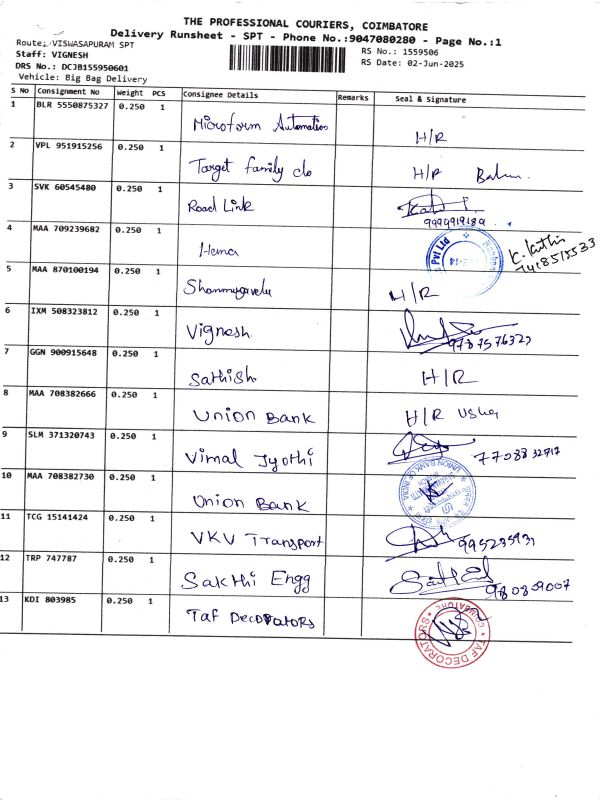 THE PROFESSIONAL COURIERS, COIMBATORE
Delivery Runsheet - SPT - Phone No.:9047080280 - Page No.:1
Route: VISWASAPURAM SPT
RS No.: 1559506
Staff: VIGNESH
RS Date: 02-Jun-2025
DRS No.: DCJB155950601
Vehicle: Big Bag Delivery
S No Consignment No Weight PCS Consignee Details Remarks Seal & Signature
1 BLR 5550875327 0.250 1 Microform Automation H/R
2 VPL 951915256 0.250 1 Target family clo H/R
3 SVK 60545480 0.250 1 Road Link
4 MAA 709239682 0.250 1 Hema Pvt Ltd
5 MAA 870100194 0.250 1 Shanmugavelu H/R
6 IXM 508323812 0.250 1 Vignesh
7 GGN 900915648 0.250 1 Sathish H/R
8 MAA 708382666 0.250 1 Union Bank H/R Usha
9 SLM 371320743 0.250 1 Vimal Jyothi 7708832717
10 MAA 708382730 0.250 1 Union Bank UNION BANK OF INDIA
11 TCG 15141424 0.250 1 VKV Transport
12 TRP 747787 0.250 1 Sakthi Engg
13 KDI 803985 0.250 1 Taf Decorators TAF DECORATORS